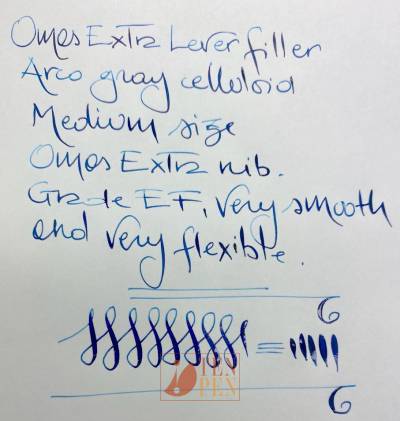 Omas Extra Lever filler
Arco gray celluloid
Medium size
Omas Extra nib.
Grade EF, very smooth
and very flexible.
6
TEN
PEN
6